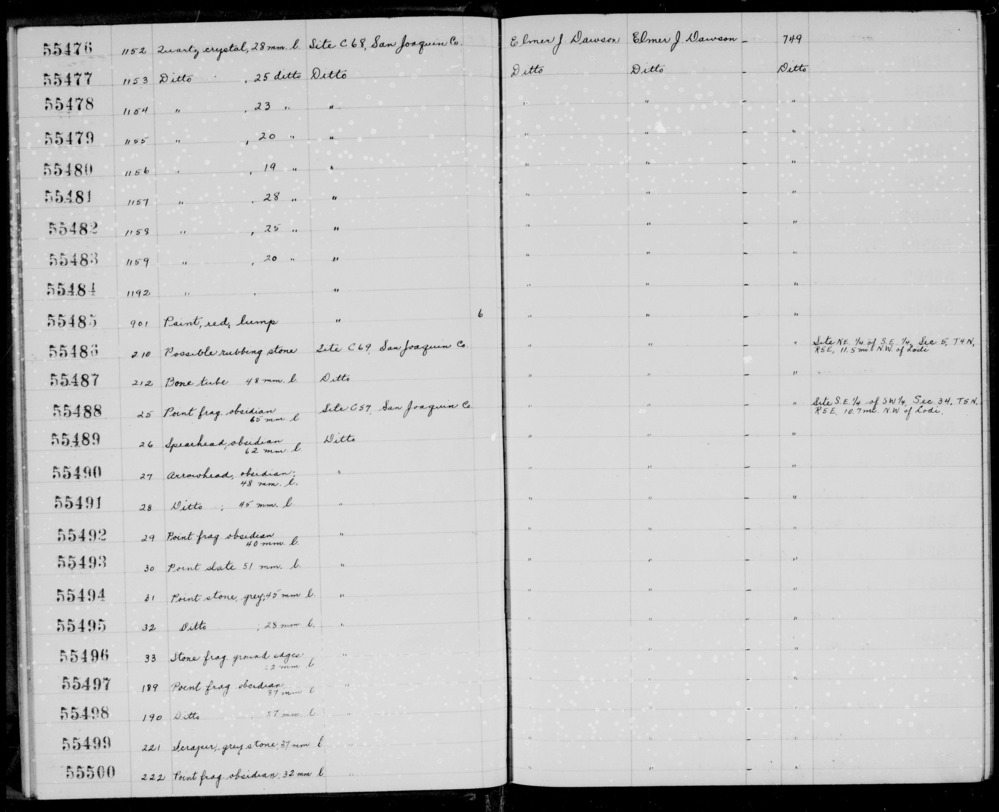 55476 1152 Quartz crystal, 28 mm. l. Site C68, San Joaquin Co. Elmer J Dawson Elmer J. Dawson - 749
55477 1153 Ditto , 25 ditto Ditto Ditto Ditto - Ditto
55478 1154 " , 23 " " " " - "
55479 1155 " , 20 " " " " - "
55480 1156 " , 19 " " " " - "
55481 1157 " , 28 " " " " - "
55482 1158 " , 25 " " " " - "
55483 1159 " , 20 " " " " - "
55484 1192 " , " " " - "
55485 901 Paint, red, lump " 6 " " - "
55486 210 Possible rubbing stone Site C69, San Joaquin Co " " - " Site N.E. 1/4 of S.E. 1/4, Sec 5, T4N,
R5E, 11.5 mi N.W. of Lodi
55487 212 Bone tube 48 mm. l. Ditto " " - "
55488 25 Point frag. obsidian Site C57, San Joaquin Co " " - " Site S.E. 1/4 of SW 1/4, Sec. 34, T5N,
65 mm l R5E, 10.7 mi. N.W. of Lodi.
55489 26 Spearhead, obsidian Ditto " " - "
62 mm l
55490 27 Arrowhead, obsidian; " " " - "
48 mm. l.
55491 28 Ditto ; 45 mm. l " " " - "
55492 29 Point frag obsidian " " " - "
40 mm l.
55493 30 Point slate 51 mm. l. " " " - "
55494 31 Point stone, grey; 45 mm l. " " " - "
55495 32 Ditto ; 28 mm l. " " " - "
55496 33 Stone frag ground edges " " " - "
mm l
55497 189 Point frag obsidian " " " - "
37 mm l
55498 190 Ditto ; 37 mm l " " " - "
55499 221 Scraper, grey stone; 37 mm l " " " - "
55500 222 Point frag obsidian; 32 mm l " " " - "